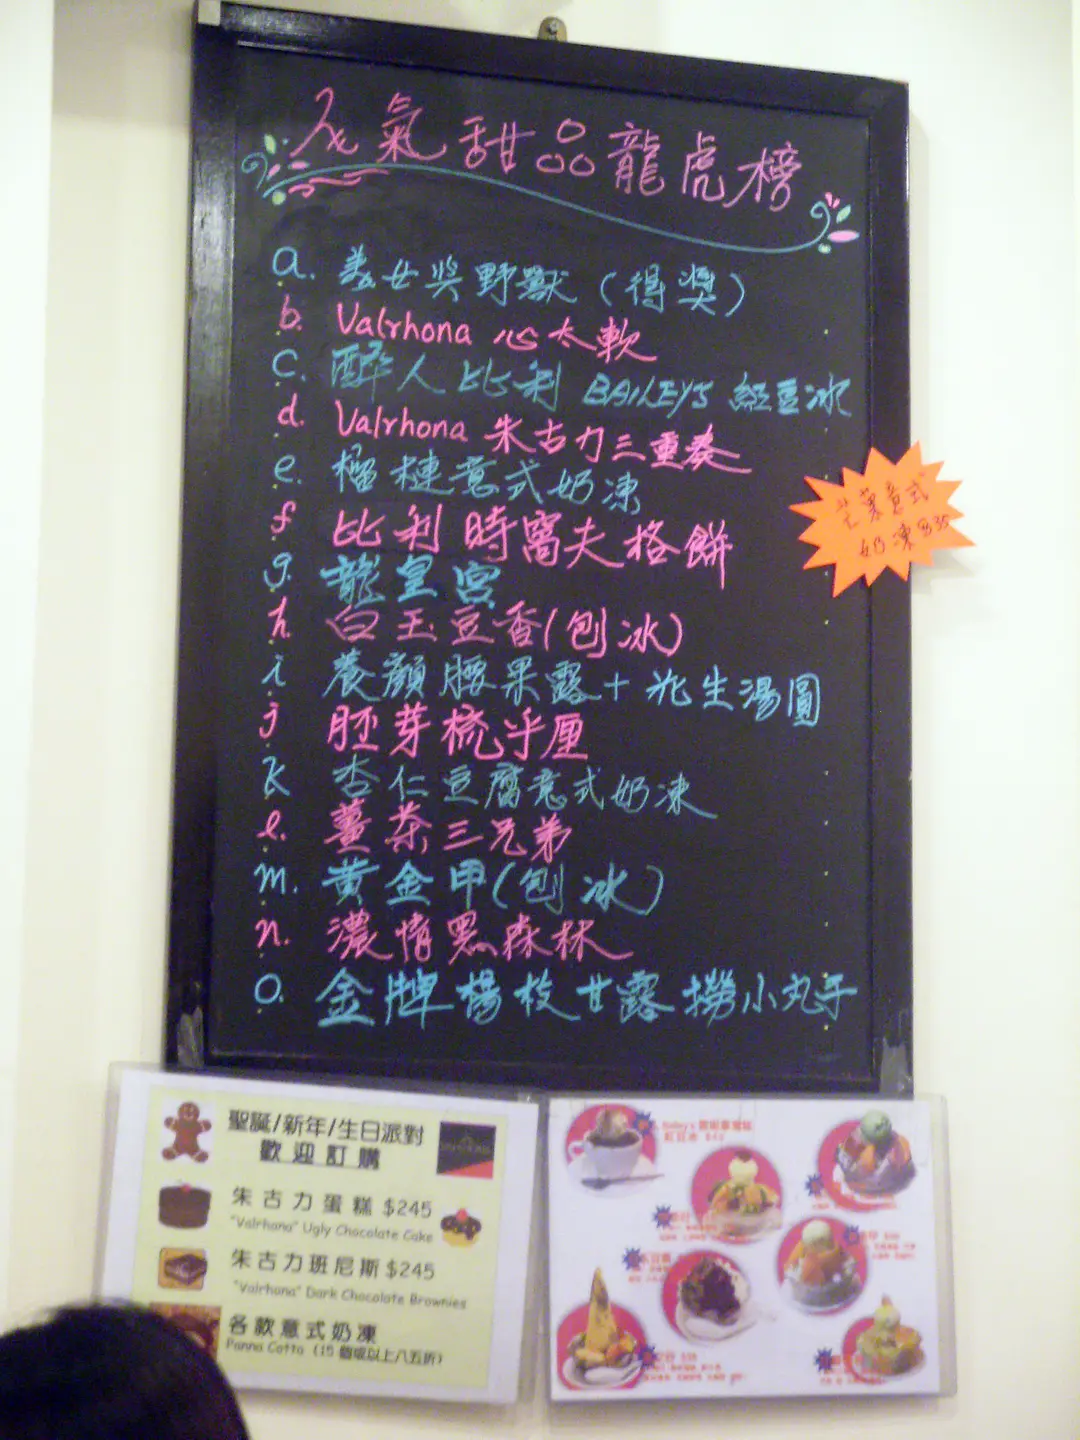 人氣甜品龍虎榜
a. 美女與野獸(得獎)
b. Valrhona 心太軟
c. 醉人比利 BAILEYS 紅豆冰
d. Valrhona 朱古力三重奏
e. 榴槤意式奶凍
f 比利時窩夫格餅
g. 龍皇宮
h 白玉豆香(刨冰)
i 養顏腰果露+花生湯圓
j 胚芽梳乎厘
k 杏仁豆腐意式奶凍
l. 薑茶三兄弟
m. 黃金甲(刨冰)
n. 濃情黑森林
o. 金牌楊枝甘露撈小丸子
芒菓意式
奶凍$35
聖誕/新年/生日派對
歡迎訂購
朱古力蛋糕 $245
"Valrhona" Ugly Chocolate Cake
朱古力班尼斯 $245
"Valrhona" Dark Chocolate Brownies
各款意式奶凍
Panna Cotta (15 個或以上八五折)
紅豆冰